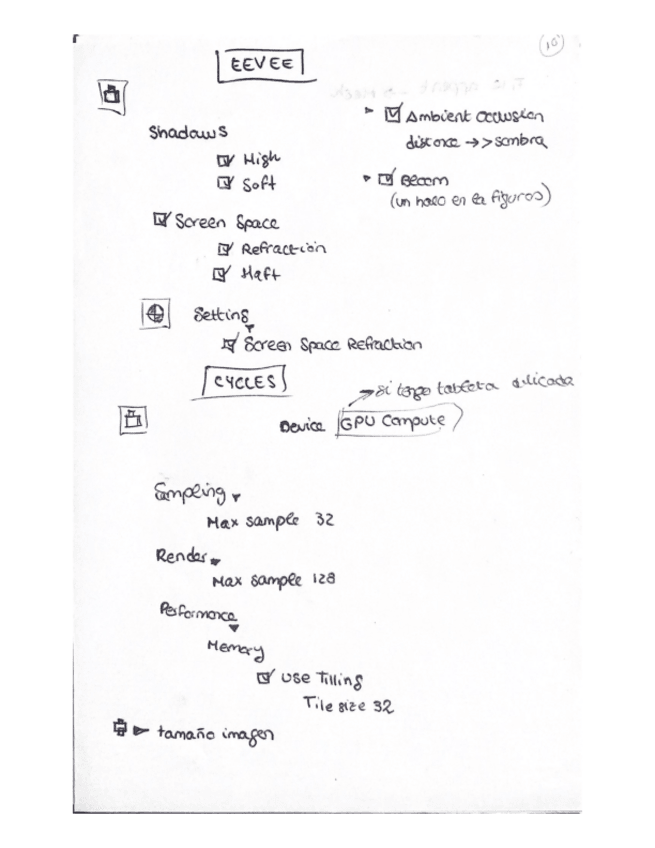 10
EEVEE
Shadows
High
Soft
Screen Space
Refraction
Haft
Ambient Occlusion
distance →> sombra
Bloom
(un halo en la figuras)
Setting
Screen Space Refraction
CYCLES
→ si tengo tableta dilicada
Device GPU Compute
Sampling
Max sample 32
Render
Max sample 128
Performance
Memory
Use Tilling
Tile size 32
tamaño imagen